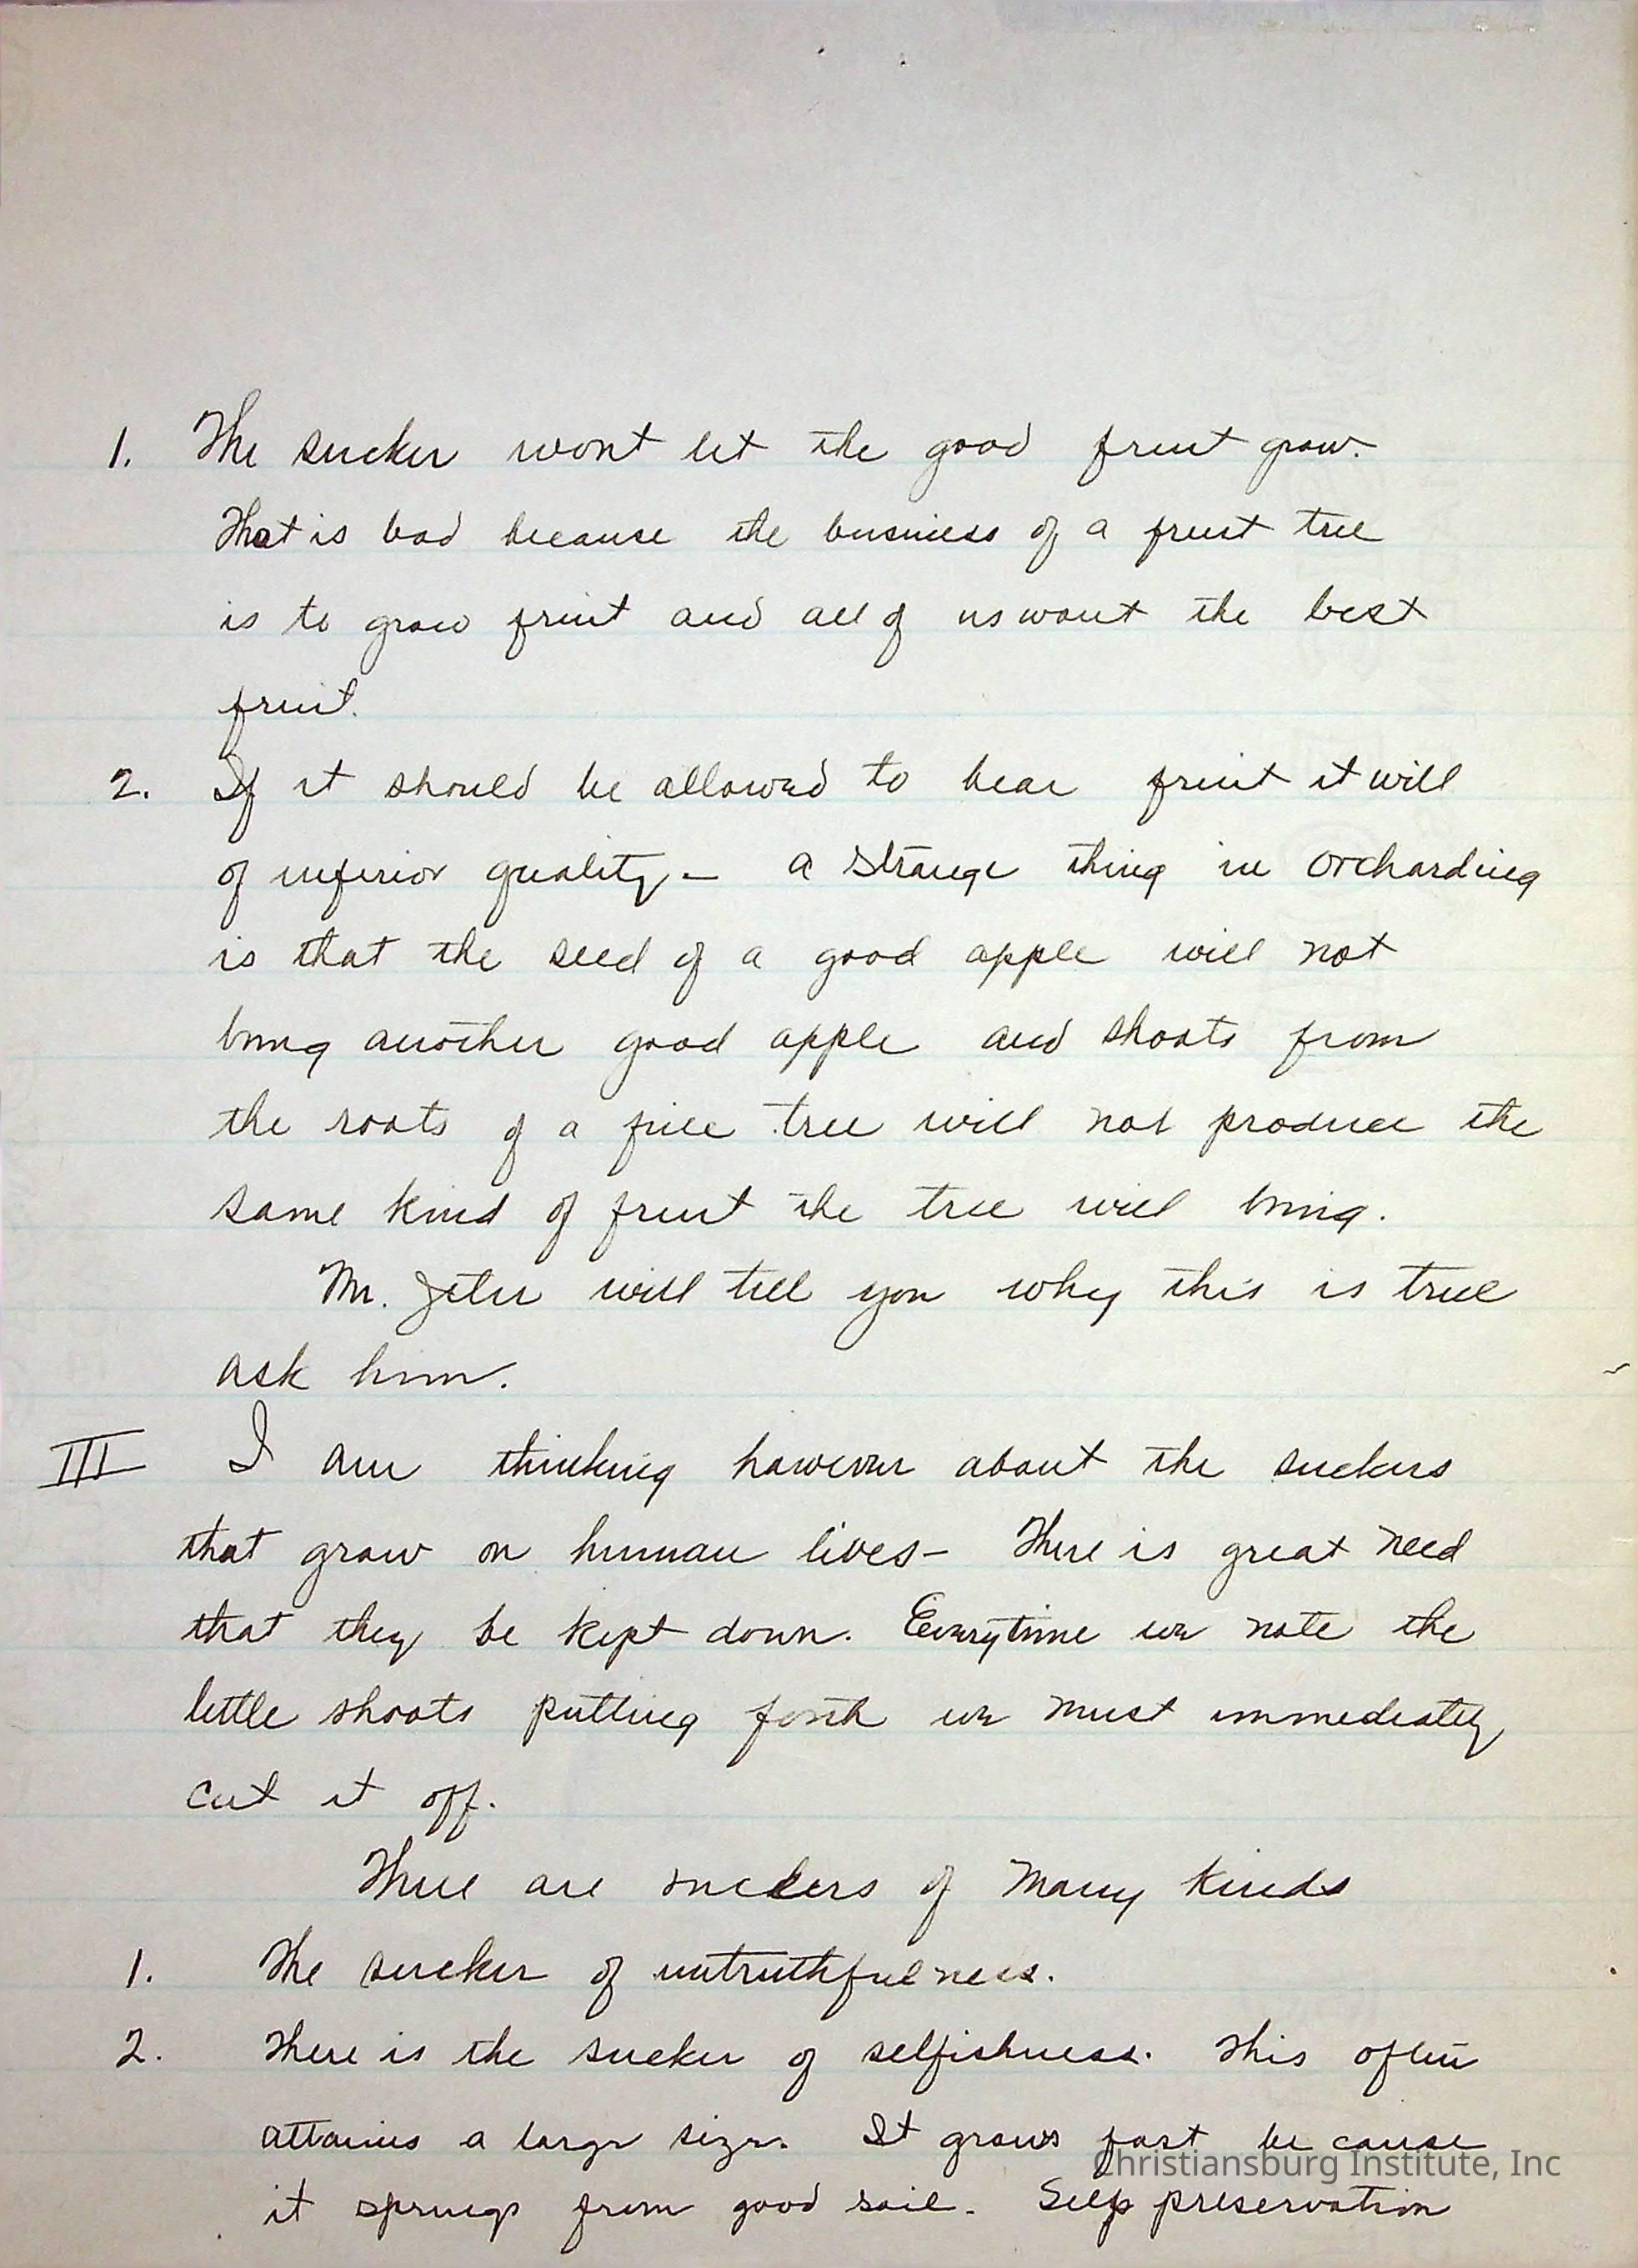 1. The sucker wont let the good fruit grow.
That is bad because the business of a fruit tree
is to grow fruit and all of us want the best
fruit.
2. If it should be allowed to bear fruit it will
of inferior quality - a strange thing in orcharding
is that the seed of a good apple will not
bring another good apple and shoots from
the roots of a fine tree will not produce the
same kind of fruit the tree will bring.
Mr. Jeter will tell you why this is true
ask him.
III I am thinking however about the suckers
that grow on human lives - There is great need
that they be kept down. Everytime we note the
little shoots putting forth we must immediately
cut it off.
There are suckers of many kinds
1. The sucker of untruthfulness.
2. There is the sucker of selfishness. This often
attains a large size. It grows fast be cause
Christiansburg Institute, Inc
it springs from good soil. Self preservation